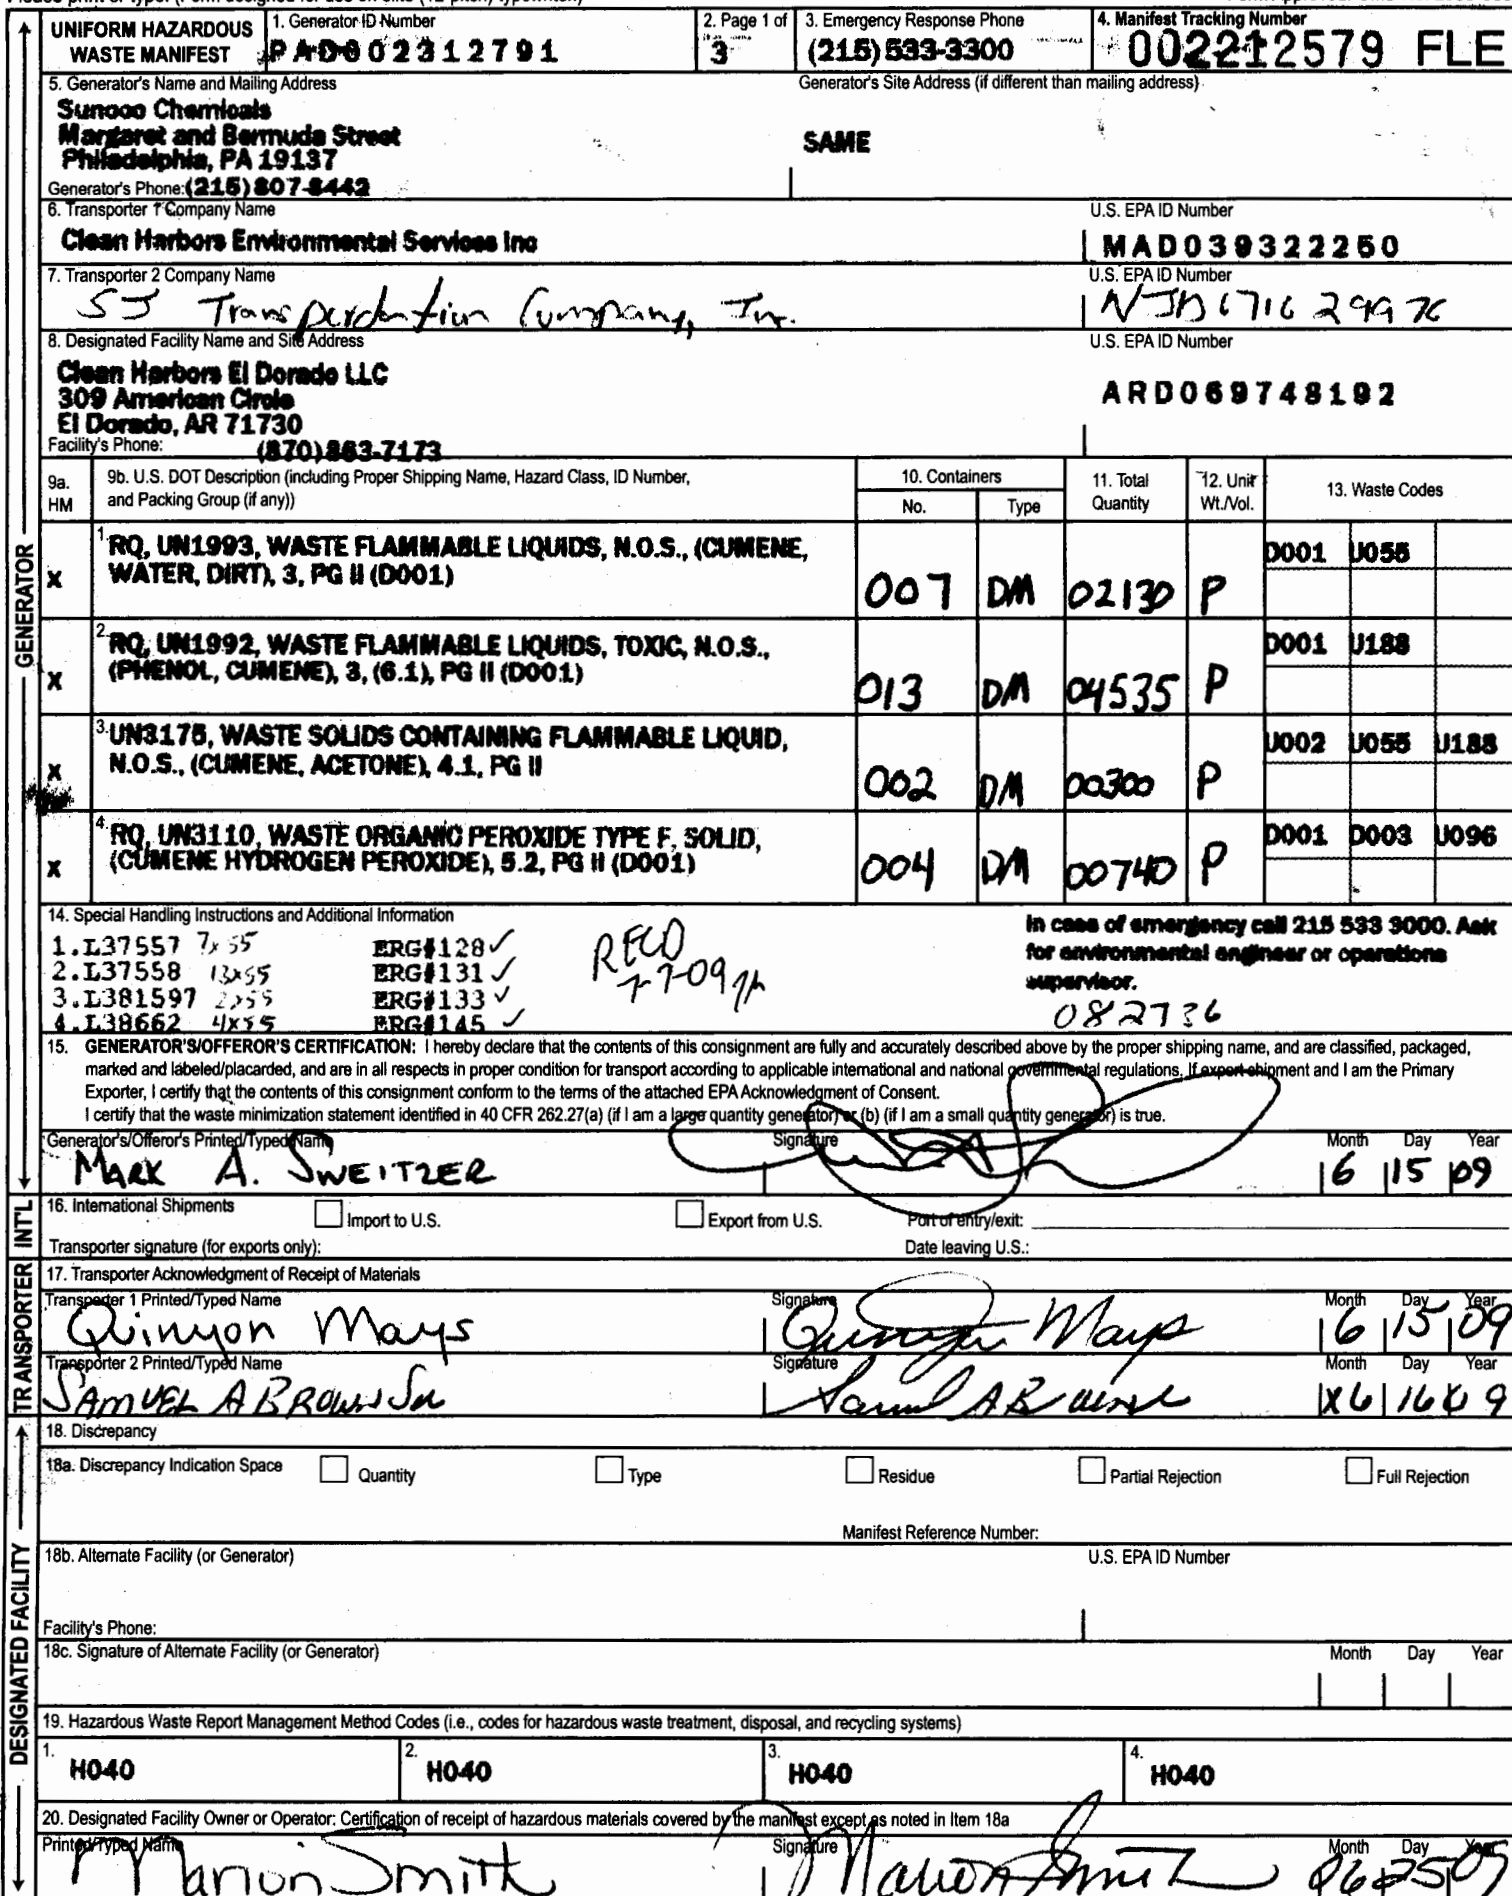 UNIFORM HAZARDOUS WASTE MANIFEST
1. Generator ID Number
PAD002312791
2. Page 1 of
3
3. Emergency Response Phone
(215) 533-3300
4. Manifest Tracking Number
002212579 FLE
5. Generator's Name and Mailing Address
Generator's Site Address (if different than mailing address)
Sunoco Chemicals
Margaret and Bermuda Street
SAME
Philadelphia, PA 19137
Generator's Phone: (215) 807-8442
6. Transporter 1 Company Name
U.S. EPA ID Number
Clean Harbors Environmental Services Inc
MAD039322250
7. Transporter 2 Company Name
U.S. EPA ID Number
SJ Transportation Company, Inc.
8. Designated Facility Name and Site Address
U.S. EPA ID Number
Clean Harbors El Dorado LLC
309 American Circle
ARD069748192
El Dorado, AR 71730
Facility's Phone: (870) 863-7173
9a. HM
9b. U.S. DOT Description (including Proper Shipping Name, Hazard Class, ID Number,
and Packing Group (if any))
10. Containers
No.
Type
11. Total Quantity
12. Unit Wt./Vol.
13. Waste Codes
X
1. RQ, UN1993, WASTE FLAMMABLE LIQUIDS, N.O.S., (CUMENE,
WATER, DIRT), 3, PG II (D001)
007 DM 02130 P
D001 U055
X
2. RQ, UN1992, WASTE FLAMMABLE LIQUIDS, TOXIC, N.O.S.,
(PHENOL, CUMENE), 3, (6.1), PG II (D001)
013 DM 04535 P
D001 U188
X
3. UN3175, WASTE SOLIDS CONTAINING FLAMMABLE LIQUID,
N.O.S., (CUMENE, ACETONE), 4.1, PG II
002 DM 00300 P
U002 U055 U188
X
4. RQ, UN3110, WASTE ORGANIC PEROXIDE TYPE F, SOLID,
(CUMENE HYDROGEN PEROXIDE), 5.2, PG II (D001)
004 DM 00740 P
D001 D003 U096
14. Special Handling Instructions and Additional Information
1.L37557 7x55 ERG#128 ✓
2.L37558 13x55 ERG#131 ✓
3.L381597 2x55 ERG#133 ✓
4.L38662 4x55 ERG#145 ✓
RECD
7-7-09
In case of emergency call 215 533 3000. Ask
for environmental engineer or operations
supervisor.
082736
15. GENERATOR'S/OFFEROR'S CERTIFICATION: I hereby declare that the contents of this consignment are fully and accurately described above by the proper shipping name, and are classified, packaged,
marked and labeled/placarded, and are in all respects in proper condition for transport according to applicable international and national governmental regulations. If export shipment and I am the Primary
Exporter, I certify that the contents of this consignment conform to the terms of the attached EPA Acknowledgment of Consent.
I certify that the waste minimization statement identified in 40 CFR 262.27(a) (if I am a large quantity generator) or (b) (if I am a small quantity generator) is true.
Generator's/Offeror's Printed/Typed Name
Signature
Month Day Year
MARK A. SWEITZER
6 15 09
16. International Shipments
Import to U.S.
Export from U.S.
Port of entry/exit:
Transporter signature (for exports only):
Date leaving U.S.:
17. Transporter Acknowledgment of Receipt of Materials
Transporter 1 Printed/Typed Name
Signature
Month Day Year
Quinyon Mays
Quinyon Mays
6 15 09
Transporter 2 Printed/Typed Name
Signature
Month Day Year
SAMUEL A BROWN SR
16
18. Discrepancy
18a. Discrepancy Indication Space
Quantity
Type
Residue
Partial Rejection
Full Rejection
Manifest Reference Number:
18b. Alternate Facility (or Generator)
U.S. EPA ID Number
Facility's Phone:
18c. Signature of Alternate Facility (or Generator)
Month Day Year
19. Hazardous Waste Report Management Method Codes (i.e., codes for hazardous waste treatment, disposal, and recycling systems)
1. H040
2. H040
3. H040
4. H040
20. Designated Facility Owner or Operator: Certification of receipt of hazardous materials covered by the manifest except as noted in Item 18a
Printed/Typed Name
Signature
Month Day Year
Marion Smith
Marion Smith
06 25 09
GENERATOR
INT'L
TRANSPORTER
DESIGNATED FACILITY